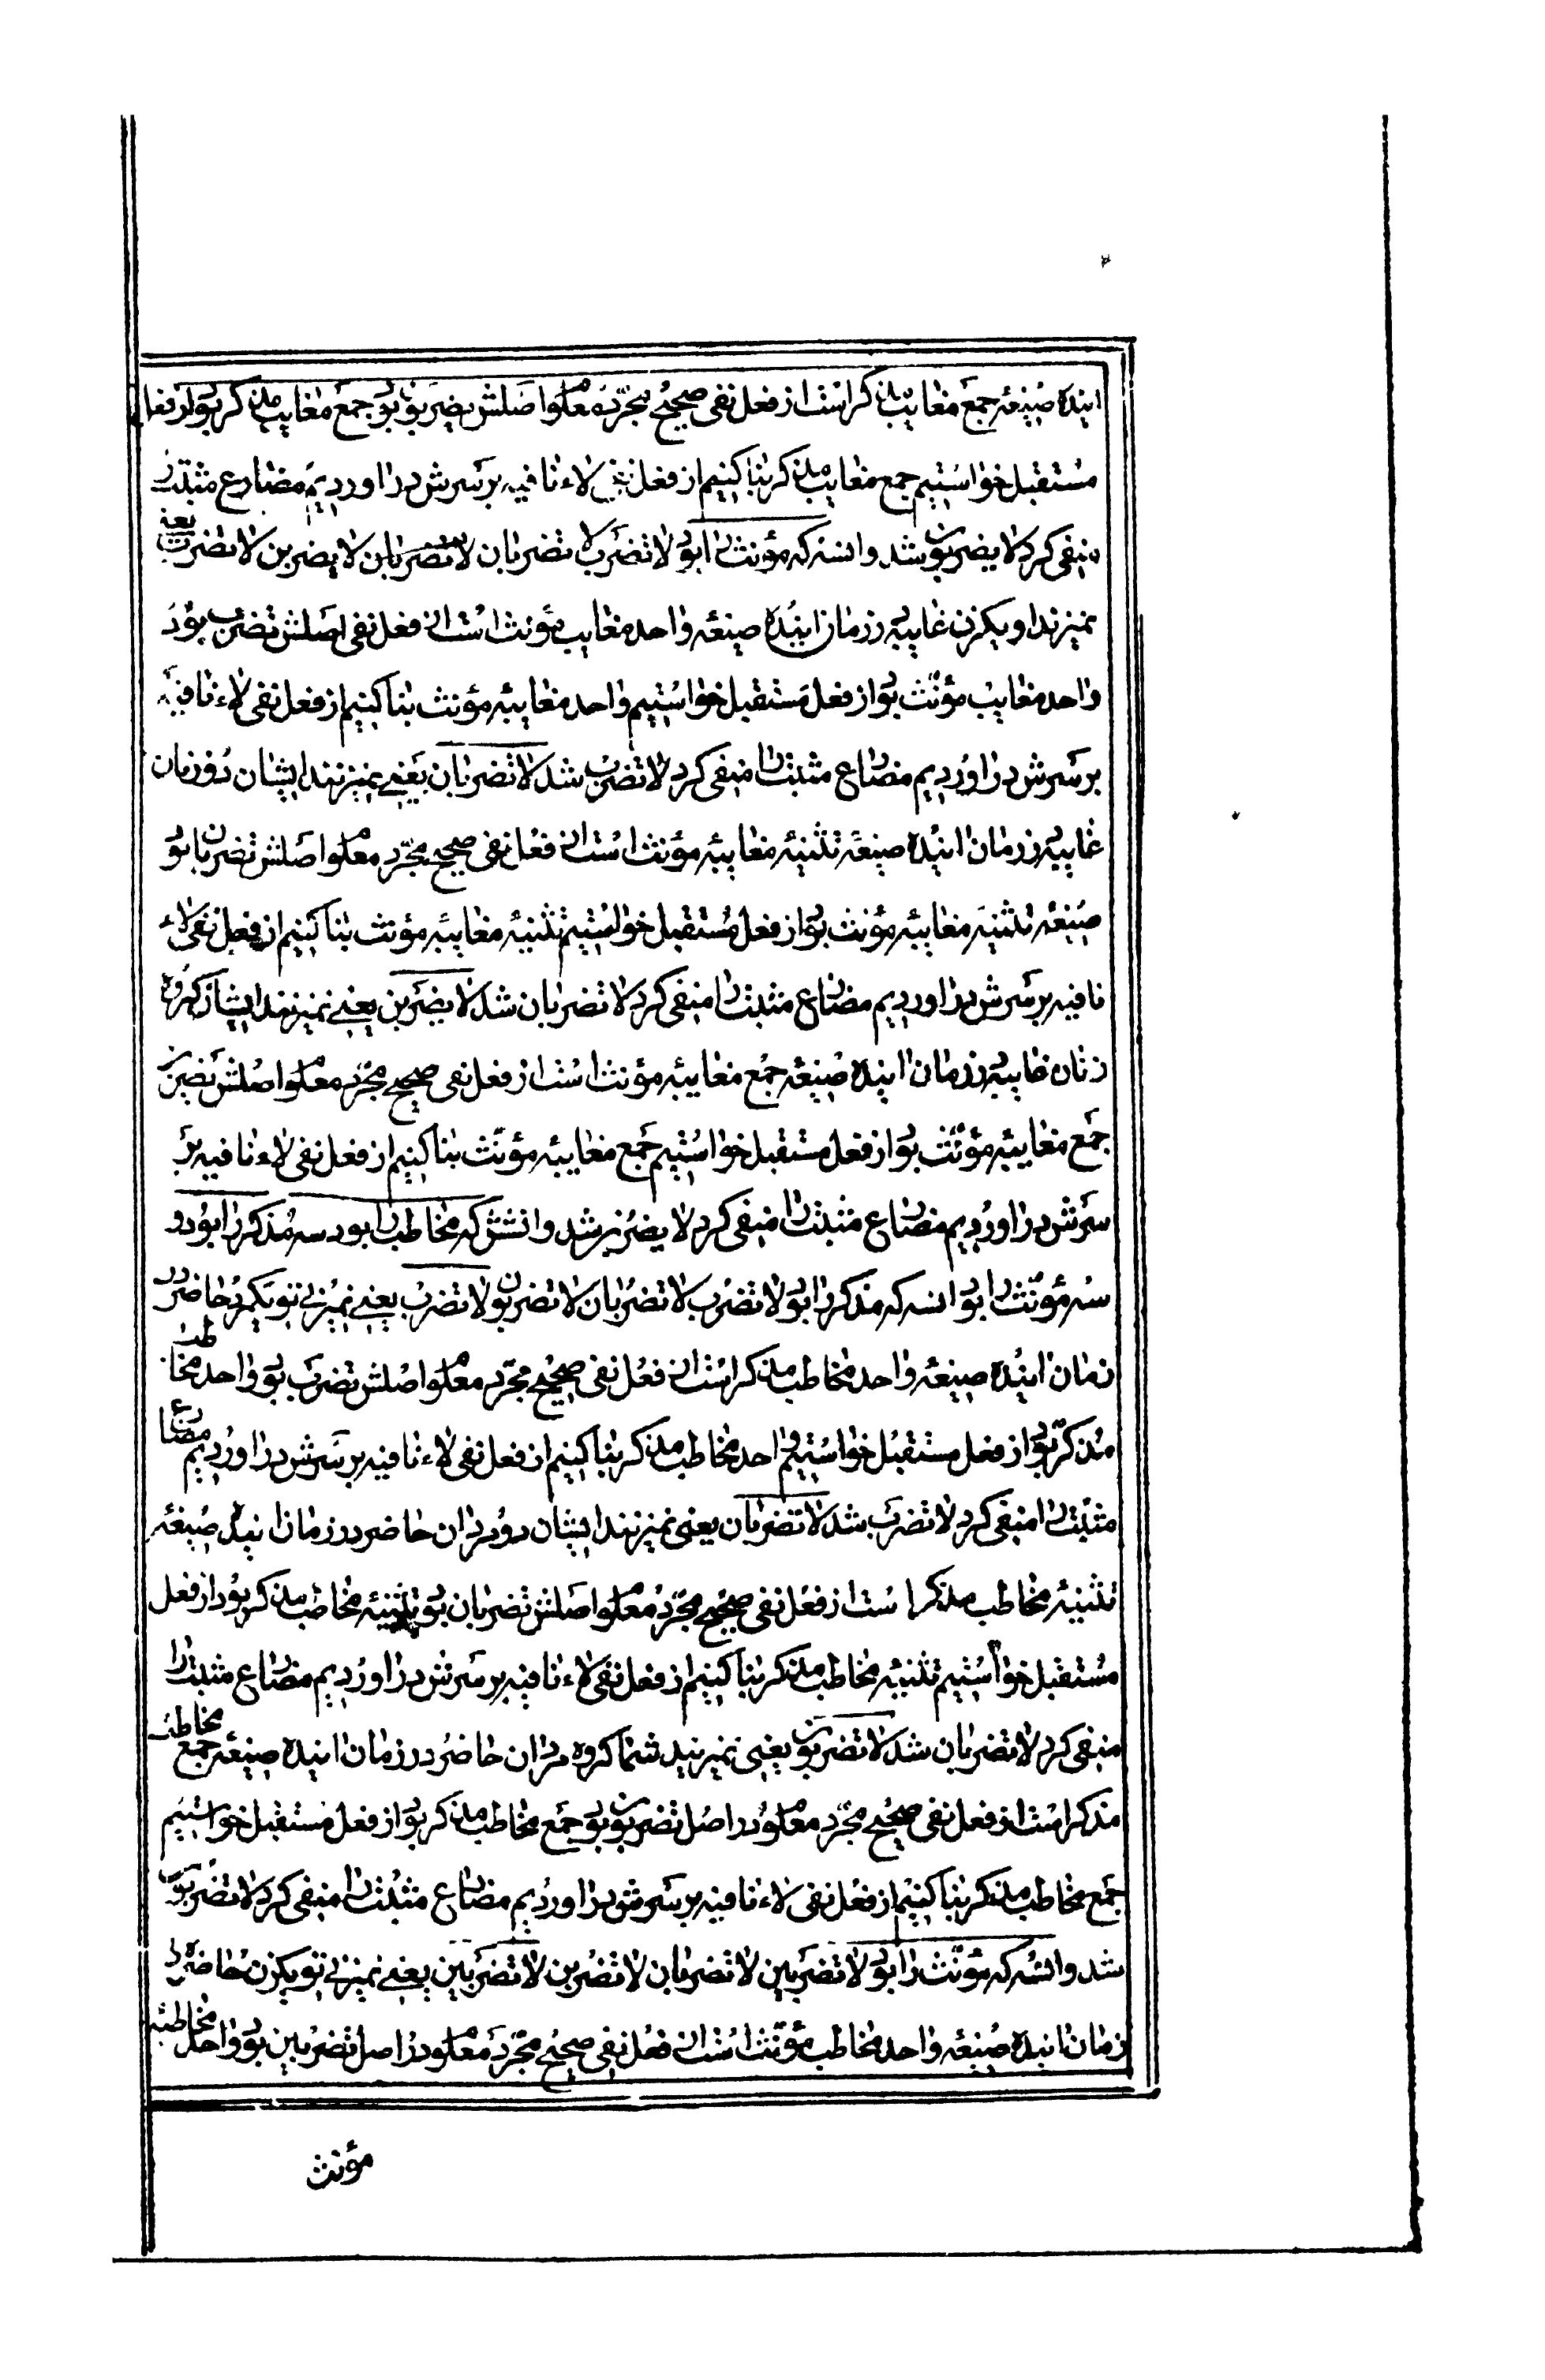 اینده صیغه جمع مغایب مذکر است از فعل نفی صحیح مجرد معلوا صلش یضربون بو جمع مغایب مذکر بو از فعل
مستقبل خواستیم جمع مغایب مذکر بنا کنیم از فعل نفی لاء نافیه بر سرش درا وردیم مضارع مثبت را
منفی کرد لا یضربون شد وانسه که مؤنث را بود لا تضرب لا تضربان لا یضربن لا تضرب یعنی
نمیزند او یکزن غایبه در زمان اینده صیغه واحد مغایب مؤنث است از فعل نفی اصلش تضرب بود
واحد مغایب مؤنث بو از فعل مستقبل خواستیم واحد مغایبه مؤنث بنا کنیم از فعل نفی لاء نافیه
بر سرش درا وردیم مضارع مثبت را منفی کرد لا تضرب شد لا تضربان یعنی نمیزنند ایشان دو زنان
غایبه در زمان اینده صیغه تثنیه مغایبه مؤنث است از فعل نفی صحیح مجرد معلوا صلش تضربان بو
صیغه تثنیه مغایبه مؤنث بو از فعل مستقبل خواستیم تثنیه مغایبه مؤنث بنا کنیم از فعل نفی لاء
نافیه بر سرش درا وردیم مضارع مثبت را منفی کرد لا تضربان شد لا یضربن یعنی نمیزنند ایشان کروه
زنان غایبه در زمان اینده صیغه جمع مغایبه مؤنث است از فعل نفی صحیح مجرد معلوا صلش یضربن
جمع مغایبه مؤنث بو از فعل مستقبل خواستیم جمع مغایبه مؤنث بنا کنیم از فعل نفی لاء نافیه بر
سرش درا وردیم مضارع مثبت را منفی کرد لا یضربن شد وانشش که مخاطب را بود سه مذکر را بود و
سه مؤنث را بو انسه که مذکر را بو لا تضرب لا تضربان لا تضربون لا تضرب یعنی نمیزنی تو یکمرد حاضر در
زمان اینده صیغه واحد مخاطب مذکر است از فعل نفی صحیح مجرد معلوا صلش تضرب بو واحد مخاطب
مذکر بو از فعل مستقبل خواستیم واحد مخاطب مذکر بنا کنیم از فعل نفی لاء نافیه بر سرش درا وردیم مضارع
مثبت را منفی کرد لا تضرب شد لا تضربان یعنی نمیزنند ایشان دو مردان حاضر در زمان اینده صیغه
تثنیه مخاطب مذکر است از فعل نفی صحیح مجرد معلوا صلش تضربان بو تثنیه مخاطب مذکر بود از فعل
مستقبل خواستیم تثنیه مخاطب مذکر بنا کنیم از فعل نفی لاء نافیه بر سرش درا وردیم مضارع مثبت را
منفی کرد لا تضربان شد لا تضربون یعنی نمیزنید شما کروه مردان حاضر در زمان اینده صیغه جمع مخاطب
مذکر است از فعل نفی صحیح مجرد معلو در اصل تضربون بو جمع مخاطب مذکر بو از فعل مستقبل خواستیم
جمع مخاطب مذکر بنا کنیم از فعل نفی لاء نافیه بر سرش درا وردیم مضارع مثبت را منفی کرد لا تضربون
شد وانسه که مؤنث را بو لا تضربین لا تضربان لا تضربن لا تضربین یعنی نمیزنی تو یکزن حاضره در
زمان اینده صیغه واحد مخاطب مؤنث است از فعل نفی صحیح مجرد معلو در اصل تضربین بو واحد مخاطبه
مؤنث